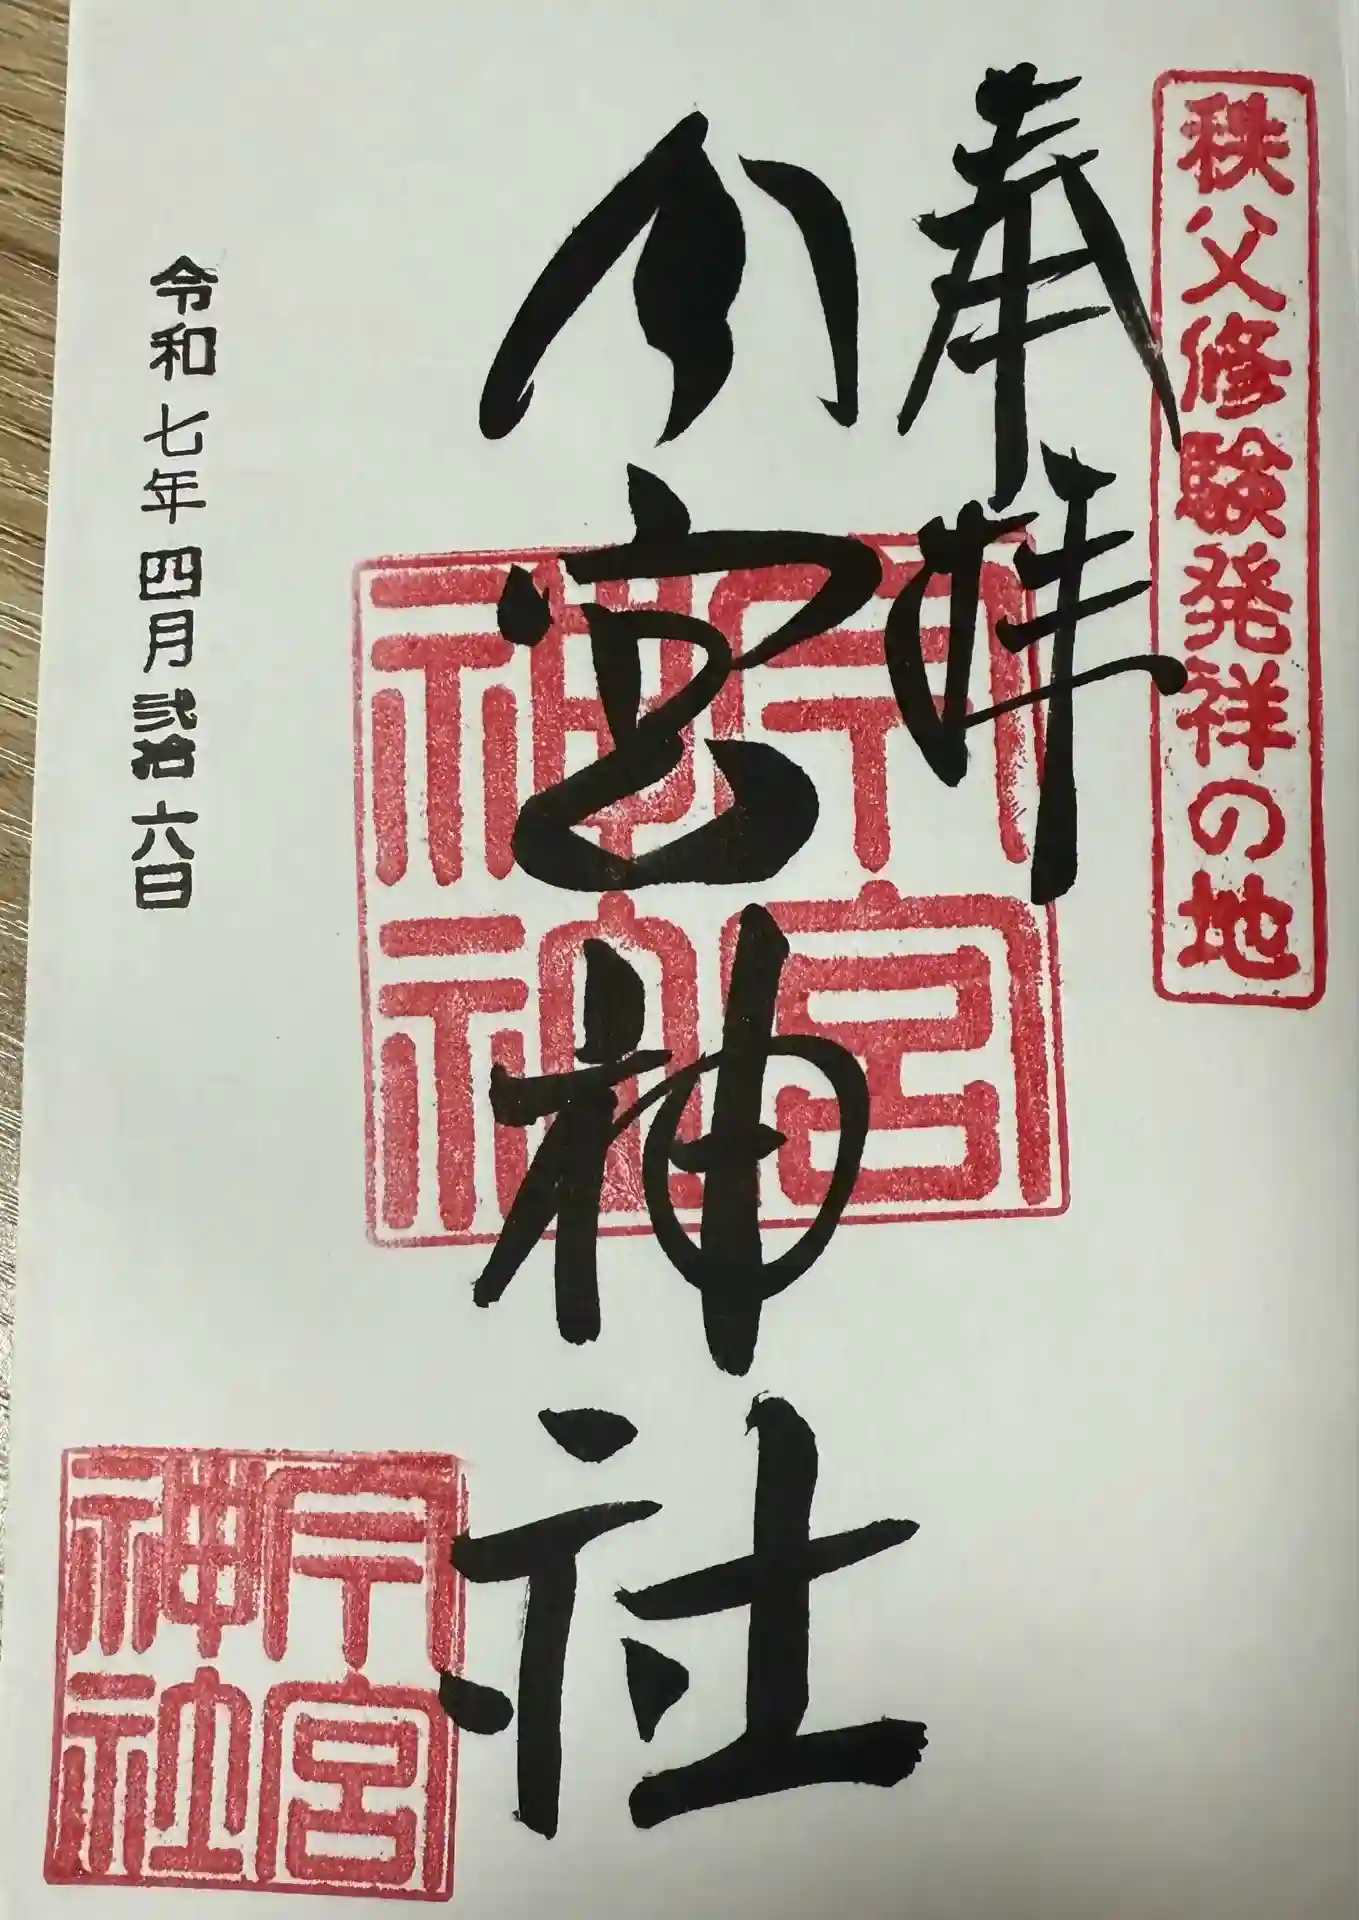 秩父修験発祥の地
奉拝
今宮神社
今宮
神社
令和七年四月弐拾六日
今宮
神社